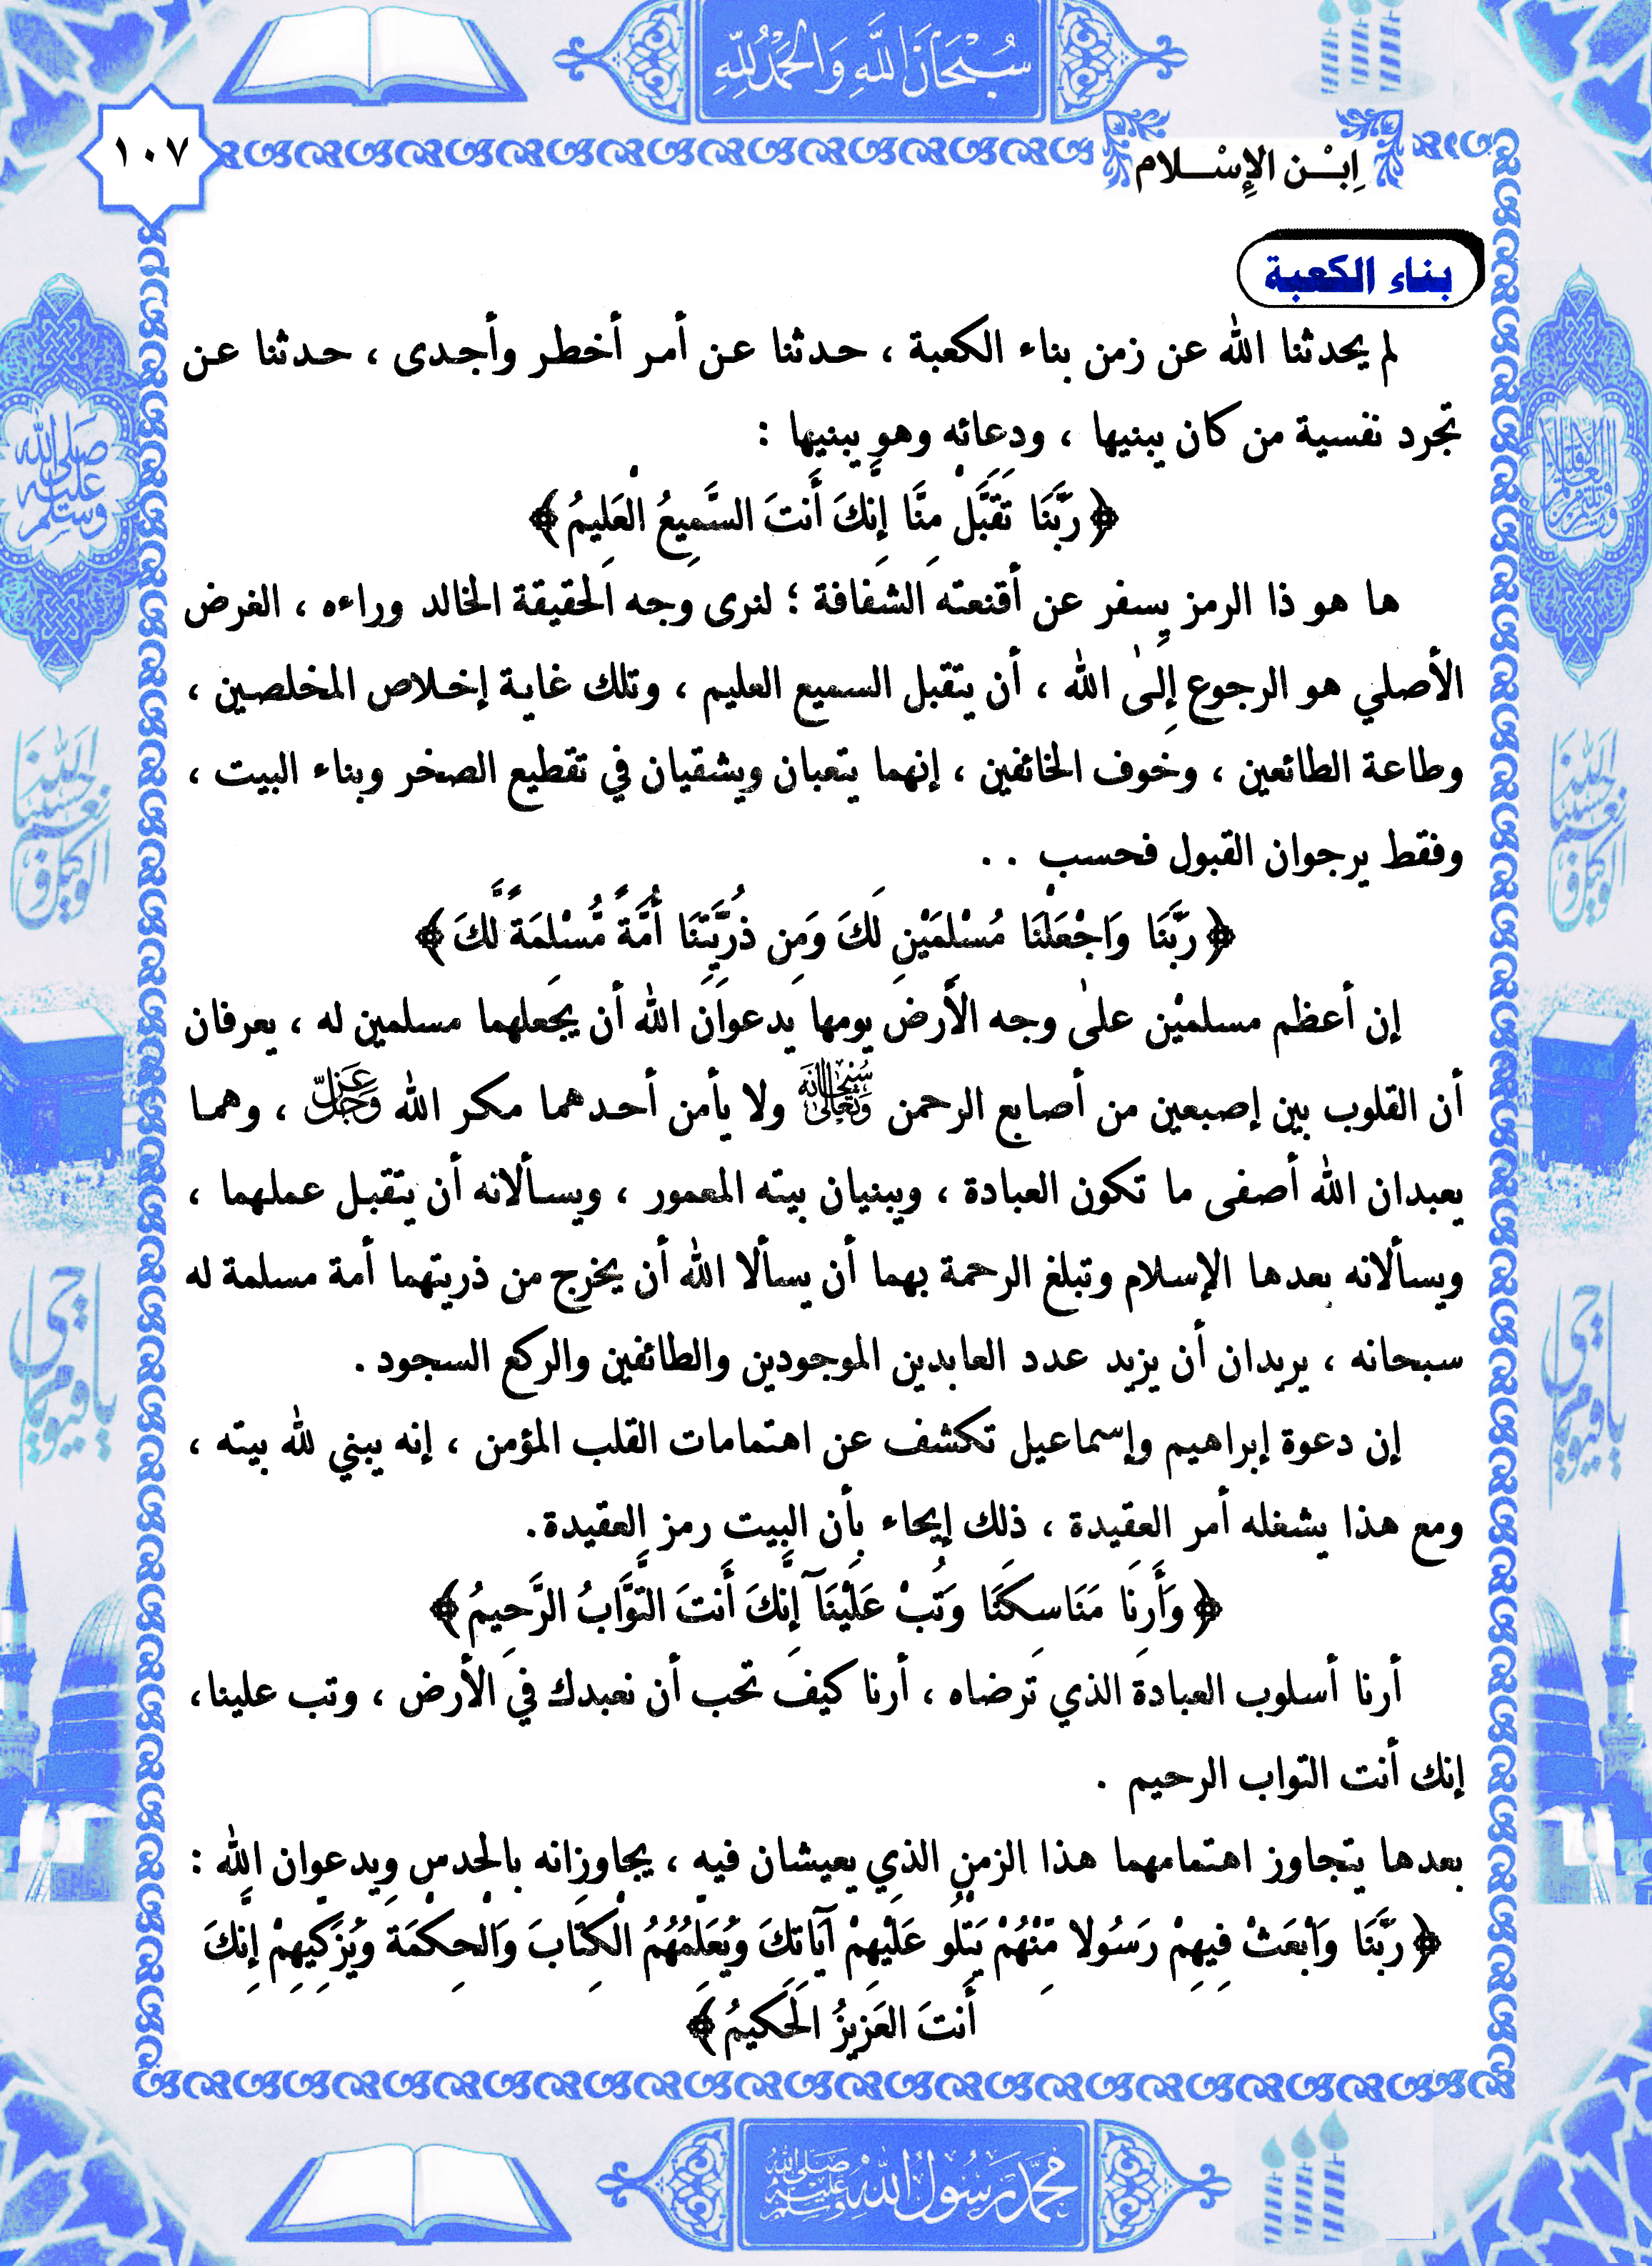 سُبْحَانَ اللَّهِ وَالحَمْدُ لِلَّهِ
١٠٧
اِبْـن الإِسْـلام
بناء الكعبة
لم يحدثنا الله عن زمن بناء الكعبة ، حدثنا عن أمر أخطر وأجدى ، حدثنا عن
تجرد نفسية من كان يبنيها ، ودعائه وهو يبنيها :
﴿ رَبَّنَا تَقَبَّلْ مِنَّا إِنَّكَ أَنتَ السَّمِيعُ الْعَلِيمُ ﴾
ها هو ذا الرمز يسفر عن أقنعته الشفافة ؛ لنرى وجه الحقيقة الخالد وراءه ، الغرض
الأصلي هو الرجوع إلىٰ الله ، أن يتقبل السميع العليم ، وتلك غاية إخلاص المخلصين ،
وطاعة الطائعين ، وخوف الخائفين ، إنهما يتعبان ويشقيان في تقطيع الصخر وبناء البيت ،
وفقط يرجوان القبول فحسب . .
﴿ رَبَّنَا وَاجْعَلْنَا مُسْلِمَيْنِ لَكَ وَمِن ذُرِّيَّتِنَا أُمَّةً مُّسْلِمَةً لَّكَ ﴾
إن أعظم مسلميْن علىٰ وجه الأرض يومها يدعوان الله أن يجعلهما مسلمين له ، يعرفان
أن القلوب بين إصبعين من أصابع الرحمن سُبْحَانَهُ وَتَعَالَىٰ ولا يأمن أحدهما مكر الله عَزَّ وَجَلَّ ، وهما
يعبدان الله أصفى ما تكون العبادة ، ويبنيان بيته المعمور ، ويسألانه أن يتقبل عملهما ،
ويسألانه بعدها الإسلام وتبلغ الرحمة بهما أن يسألا الله أن يخرج من ذريتهما أمة مسلمة له
سبحانه ، يريدان أن يزيد عدد العابدين الموجودين والطائفين والركع السجود .
إن دعوة إبراهيم وإسماعيل تكشف عن اهتمامات القلب المؤمن ، إنه يبني لله بيته ،
ومع هذا يشغله أمر العقيدة ، ذلك إيحاء بأن البيت رمز العقيدة.
﴿ وَأَرِنَا مَنَاسِكَنَا وَتُبْ عَلَيْنَآ إِنَّكَ أَنتَ التَّوَّابُ الرَّحِيمُ ﴾
أرنا أسلوب العبادة الذي ترضاه ، أرنا كيف تحب أن نعبدك في الأرض ، وتب علينا،
إنك أنت التواب الرحيم .
بعدها يتجاوز اهتمامهما هذا الزمن الذي يعيشان فيه ، يجاوزانه بالحدس ويدعوان الله :
﴿ رَبَّنَا وَابْعَثْ فِيهِمْ رَسُولا مِّنْهُمْ يَتْلُو عَلَيْهِمْ آيَاتِكَ وَيُعَلِّمُهُمُ الْكِتَابَ وَالْحِكْمَةَ وَيُزَكِّيهِمْ إِنَّكَ
أَنتَ العَزِيزُ الْحَكِيمُ ﴾
صلى الله عليه وسلم
حسبنا الله ونعم الوكيل
يا حي يا قيوم
محمَّد رَسُولُ اللَّهِ صلى الله عليه وسلم